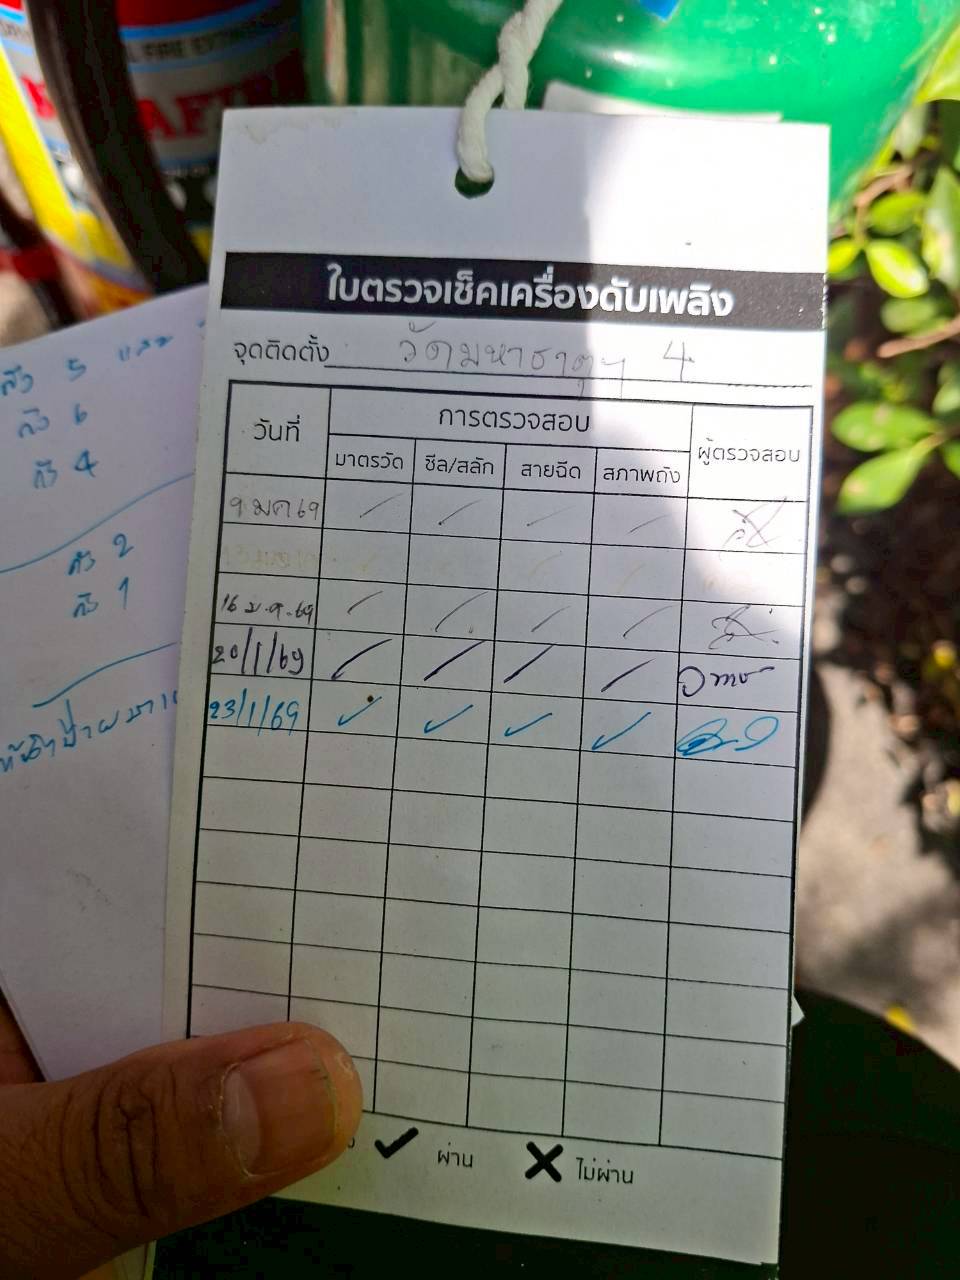 FIRE EXTIN
ใบตรวจเช็คเครื่องดับเพลิง
จุดติดตั้ง วัดมหาธาตุฯ 4
วันที่ การตรวจสอบ ผู้ตรวจสอบ
มาตรวัด ซีล/สลัก สายฉีด สภาพถัง
9 มค 69 / / / /
16 ม.ค.69 / / / /
20/1/69 / / / /
23/1/69 ✓ ✓ ✓ ✓
✓ ผ่าน ✗ ไม่ผ่าน
ถัง 5
ถัง 6
ถัง 4
ถัง 2
ถัง 1